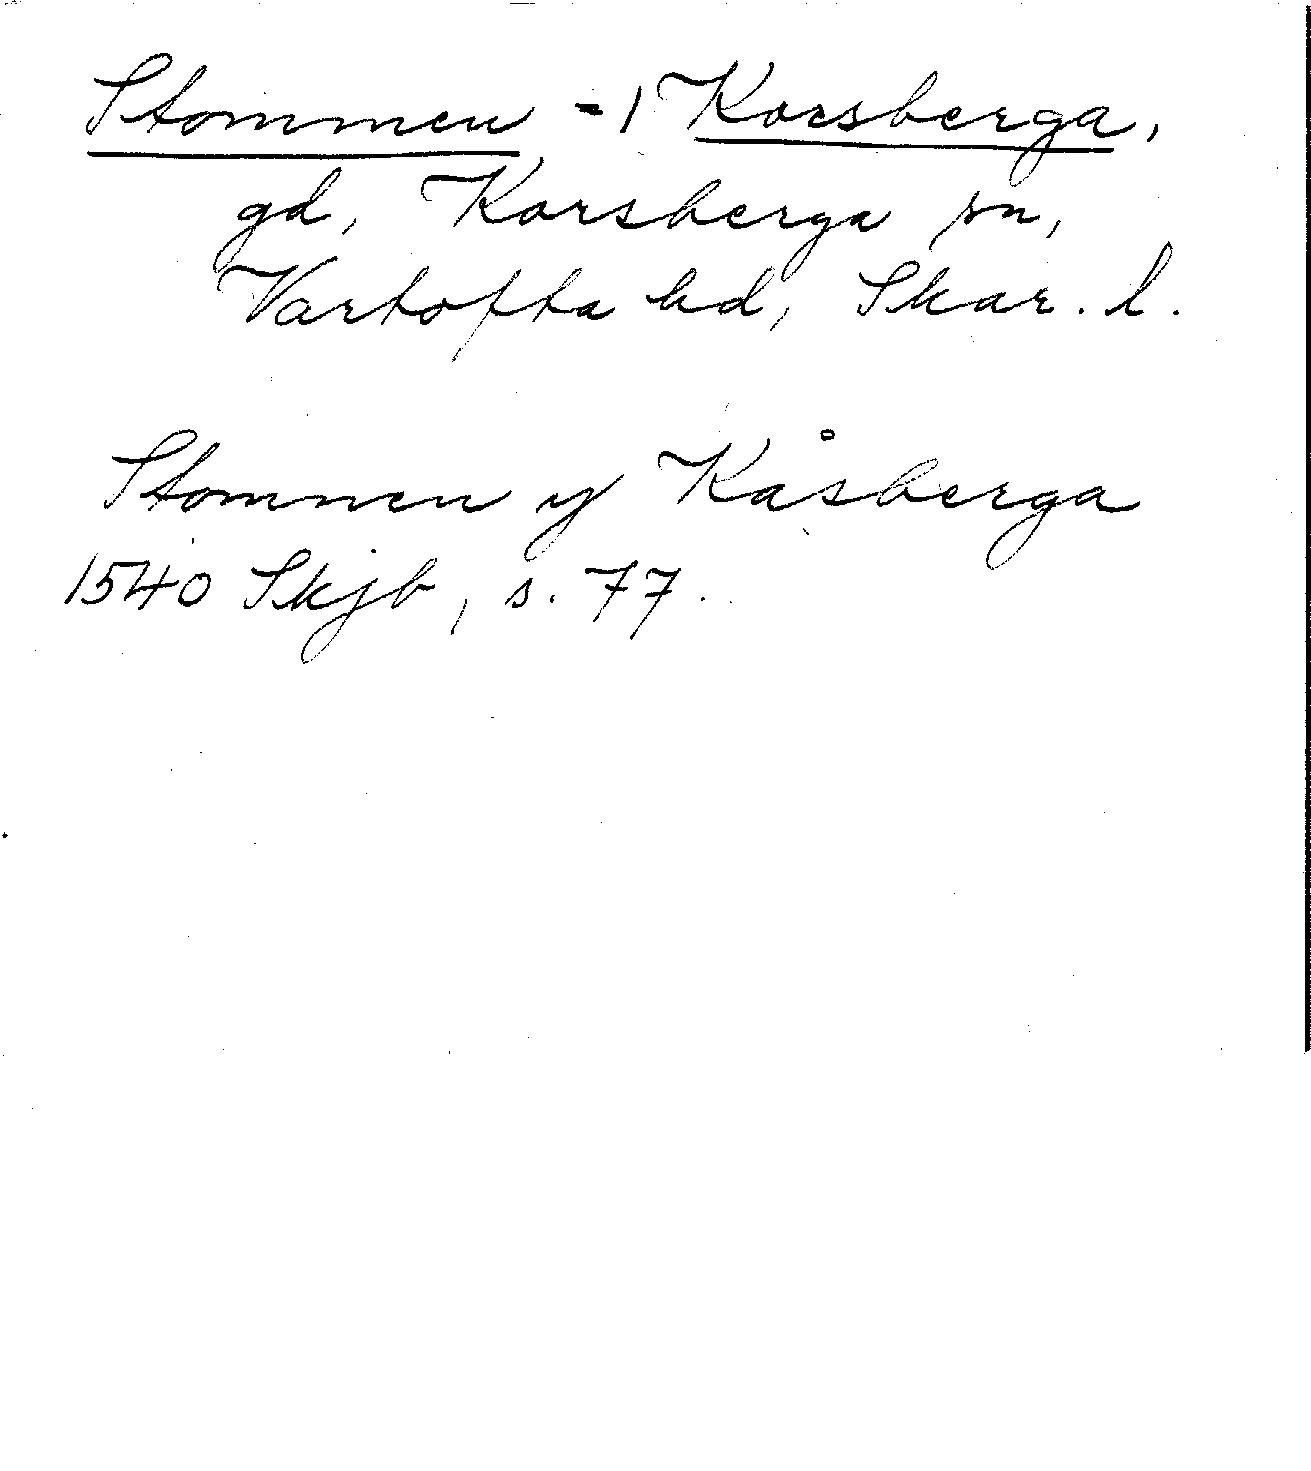 Stommen -1 Korsberga,
gd, Korsberga sn,
Vartofta hd, Skar. l.
Stommen y Kåsberga
1540 Skjb, s. 77.